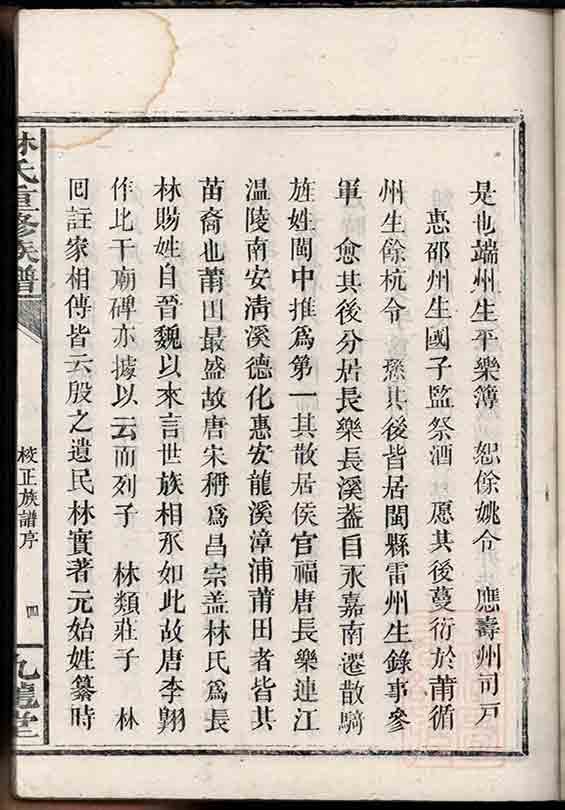 是也端州生平樂簿　恕餘姚令　應壽州司戸
悫邵州生國子監祭酒　愿其後蔓衍於莆循
州生餘杭令　孫其後皆居閩縣雷州生錄事參
軍　愈其後分居長樂長溪葢自永嘉南遷散騎
旌姓閩中推爲第一其散居侯官福唐長樂連江
温陵南安淸溪德化惠安龍溪漳浦莆田者皆其
苗裔也莆田最盛故唐宋稱爲昌宗盖林氏爲長
林賜姓自晉魏以來言世族相承如此故唐李翺
作比干廟碑亦據以云而列子　林類莊子　林
回註家相傳皆云殷之遺民林實著元始姓纂時
林氏重修族譜
校正族譜序
四
九龍堂